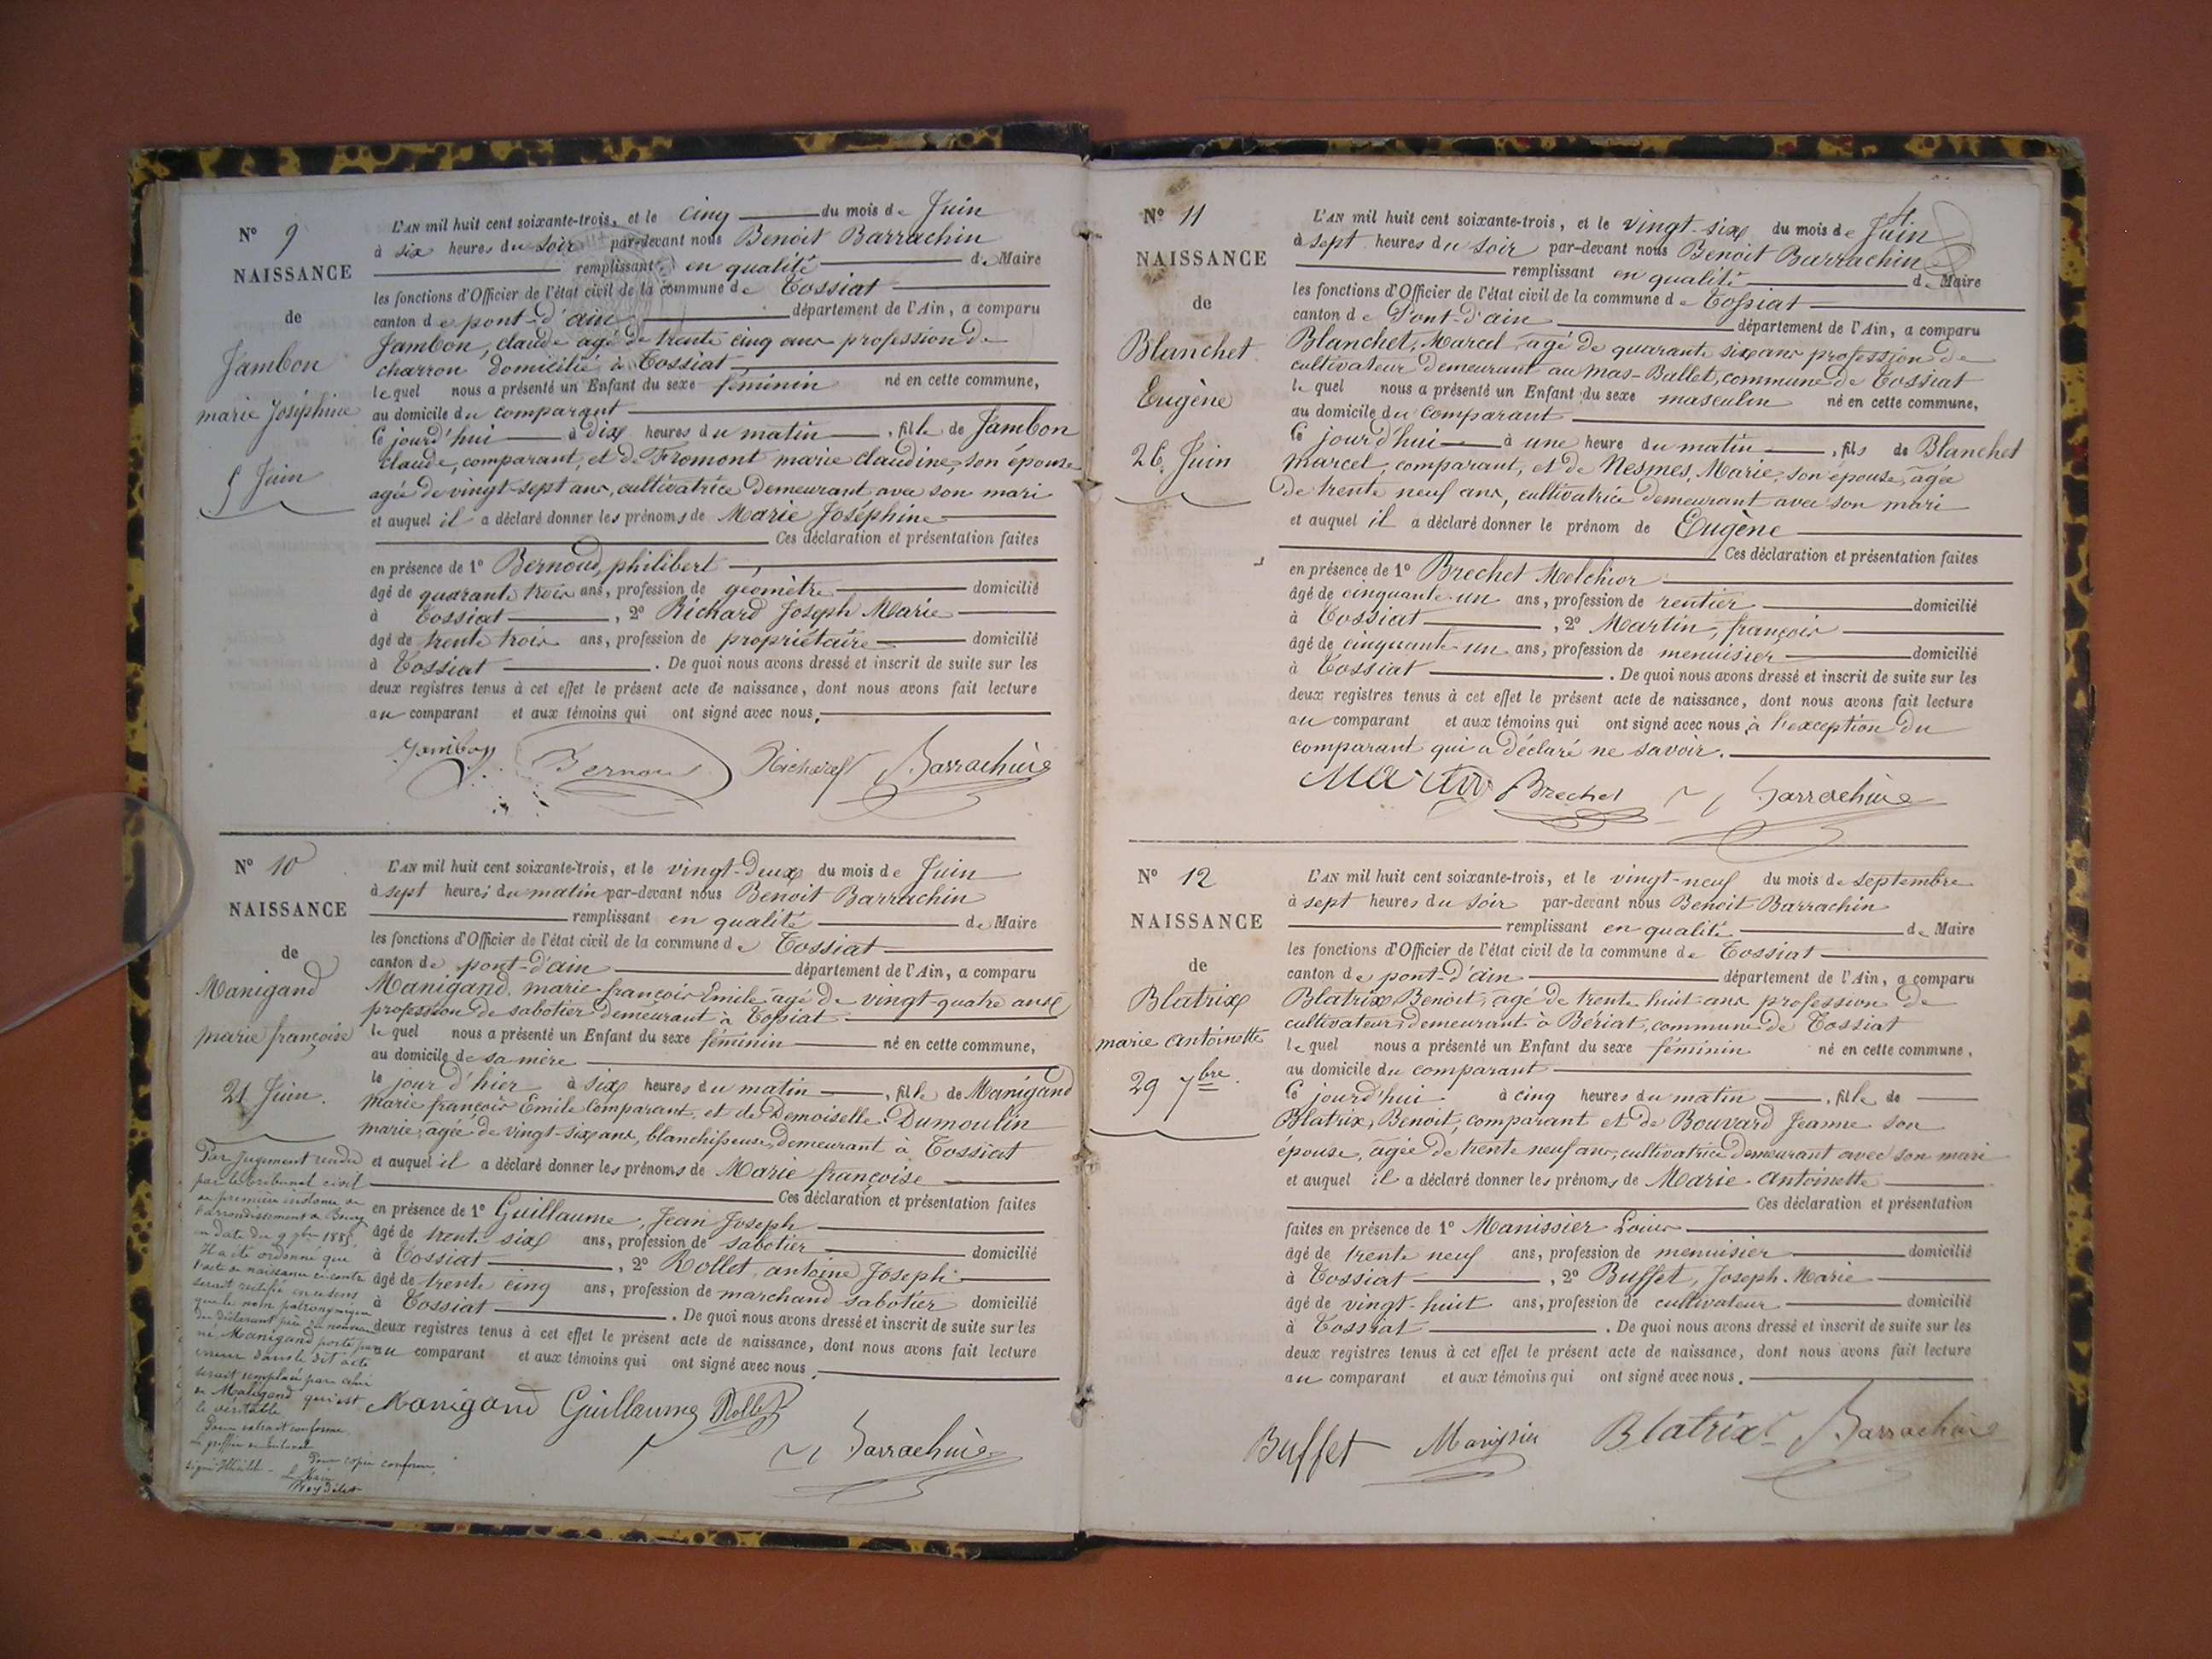 N° 9
NAISSANCE
de
Jambon
marie Joséphine
5 Juin
L'AN mil huit cent soixante-trois, et le cinq du mois de Juin
à six heures du soir par-devant nous Benoit Barrachin
remplissant en qualité de Maire
les fonctions d'Officier de l'état civil de la commune de Tossiat
canton de pont-d'ain département de l'Ain, a comparu
Jambon, claude agé de trente cinq ans profession de
charron domicilié à Tossiat
lequel nous a présenté un Enfant du sexe féminin né en cette commune,
au domicile du comparant
Ce jourd'hui à dix heures du matin, fille de Jambon
claude, comparant, et de Fromont marie claudine, son épouse
agée de vingt-sept ans, cultivatrice demeurant avec son mari
et auquel il a déclaré donner les prénoms de Marie Joséphine
Ces déclaration et présentation faites
en présence de 1° Bernoud, philibert
âgé de quarante trois ans, profession de géomètre domicilié
à Tossiat, 2° Richard Joseph Marie
âgé de trente trois ans, profession de propriétaire domicilié
à Tossiat. De quoi nous avons dressé et inscrit de suite sur les
deux registres tenus à cet effet le présent acte de naissance, dont nous avons fait lecture
au comparant et aux témoins qui ont signé avec nous.
Jambon Bernoud Richard Barrachin
N° 10
NAISSANCE
de
Manigand
marie françoise
21 Juin.
L'AN mil huit cent soixante-trois, et le vingt-deux du mois de Juin
à sept heures du matin par-devant nous Benoit Barrachin
remplissant en qualité de Maire
les fonctions d'Officier de l'état civil de la commune de Tossiat
canton de pont-d'ain département de l'Ain, a comparu
Manigand, marie françois Emile agé de vingt-quatre ans
profession de sabotier demeurant à Tossiat
lequel nous a présenté un Enfant du sexe féminin né en cette commune,
au domicile de sa mère
le jour d'hier à six heures du matin, fille de Manigand
marie françois Emile comparant, et de Demoiselle Dumoulin
marie, agée de vingt-six ans, blanchisseuse, demeurant à Tossiat
et auquel il a déclaré donner les prénoms de Marie françoise
Ces déclaration et présentation faites
en présence de 1° Guillaume, Jean Joseph
âgé de trente six ans, profession de sabotier domicilié
à Tossiat, 2° Rollet antoine Joseph
âgé de trente cinq ans, profession de marchand sabotier domicilié
à Tossiat. De quoi nous avons dressé et inscrit de suite sur les
deux registres tenus à cet effet le présent acte de naissance, dont nous avons fait lecture
au comparant et aux témoins qui ont signé avec nous.
Manigand Guillaume Rollet
Barrachin
Par jugement rendu
par le tribunal civil
de première instance de
l'arrondissement de Bourg
en date du 9
Il a été ordonné que
l'acte de naissance ci-contre
serait rectifié en ce sens
que le nom patronymique
du déclarant père du nouveau
né Manigand porté par
erreur dans le dit acte
serait remplacé par celui
de Maligand qui est
le véritable
Pour extrait conforme
Le greffier du tribunal
signé
Pour copie conforme,
Le Maire
N° 11
NAISSANCE
de
Blanchet
Eugène
26 Juin
L'AN mil huit cent soixante-trois, et le vingt-six du mois de Juin
à sept heures du soir par-devant nous Benoit Barrachin
remplissant en qualité de Maire
les fonctions d'Officier de l'état civil de la commune de Tossiat
canton de Pont-d'ain département de l'Ain, a comparu
Blanchet, Marcel, agé de quarante six ans profession de
cultivateur demeurant au mas-Ballet, commune de Tossiat
lequel nous a présenté un Enfant du sexe masculin né en cette commune,
au domicile du comparant
Ce jourd'hui à une heure du matin, fils de Blanchet
Marcel, comparant, et de Nesmes, Marie, son épouse, agée
de trente neuf ans, cultivatrice demeurant avec son mari
et auquel il a déclaré donner le prénom de Eugène
Ces déclaration et présentation faites
en présence de 1° Brechet Melchior
âgé de cinquante-un ans, profession de rentier domicilié
à Tossiat, 2° Martin, françois
âgé de cinquante-un ans, profession de menuisier domicilié
à Tossiat. De quoi nous avons dressé et inscrit de suite sur les
deux registres tenus à cet effet le présent acte de naissance, dont nous avons fait lecture
au comparant et aux témoins qui ont signé avec nous à l'exception du
comparant qui a déclaré ne savoir.
Martin Brechet Barrachin
N° 12
NAISSANCE
de
Blatrix
marie antoinette
29 7bre.
L'AN mil huit cent soixante-trois, et le vingt-neuf du mois de septembre
à sept heures du soir par-devant nous Benoit Barrachin
remplissant en qualité de Maire
les fonctions d'Officier de l'état civil de la commune de Tossiat
canton de pont-d'ain département de l'Ain, a comparu
Blatrix, Benoit, agé de trente huit ans profession de
cultivateur, demeurant à Bériat, commune de Tossiat
lequel nous a présenté un Enfant du sexe féminin né en cette commune,
au domicile du comparant
Ce jourd'hui à cinq heures du matin, fille de
Blatrix, Benoit, comparant et de Bouvard Jeanne son
épouse, agée de trente neuf ans, cultivatrice demeurant avec son mari
et auquel il a déclaré donner les prénoms de Marie Antoinette
Ces déclaration et présentation
faites en présence de 1° Manissier Louis
âgé de trente neuf ans, profession de menuisier domicilié
à Tossiat, 2° Buffet, Joseph-Marie
âgé de vingt-huit ans, profession de cultivateur domicilié
à Tossiat. De quoi nous avons dressé et inscrit de suite sur les
deux registres tenus à cet effet le présent acte de naissance, dont nous avons fait lecture
au comparant et aux témoins qui ont signé avec nous.
Buffet Manissier Blatrix Barrachin